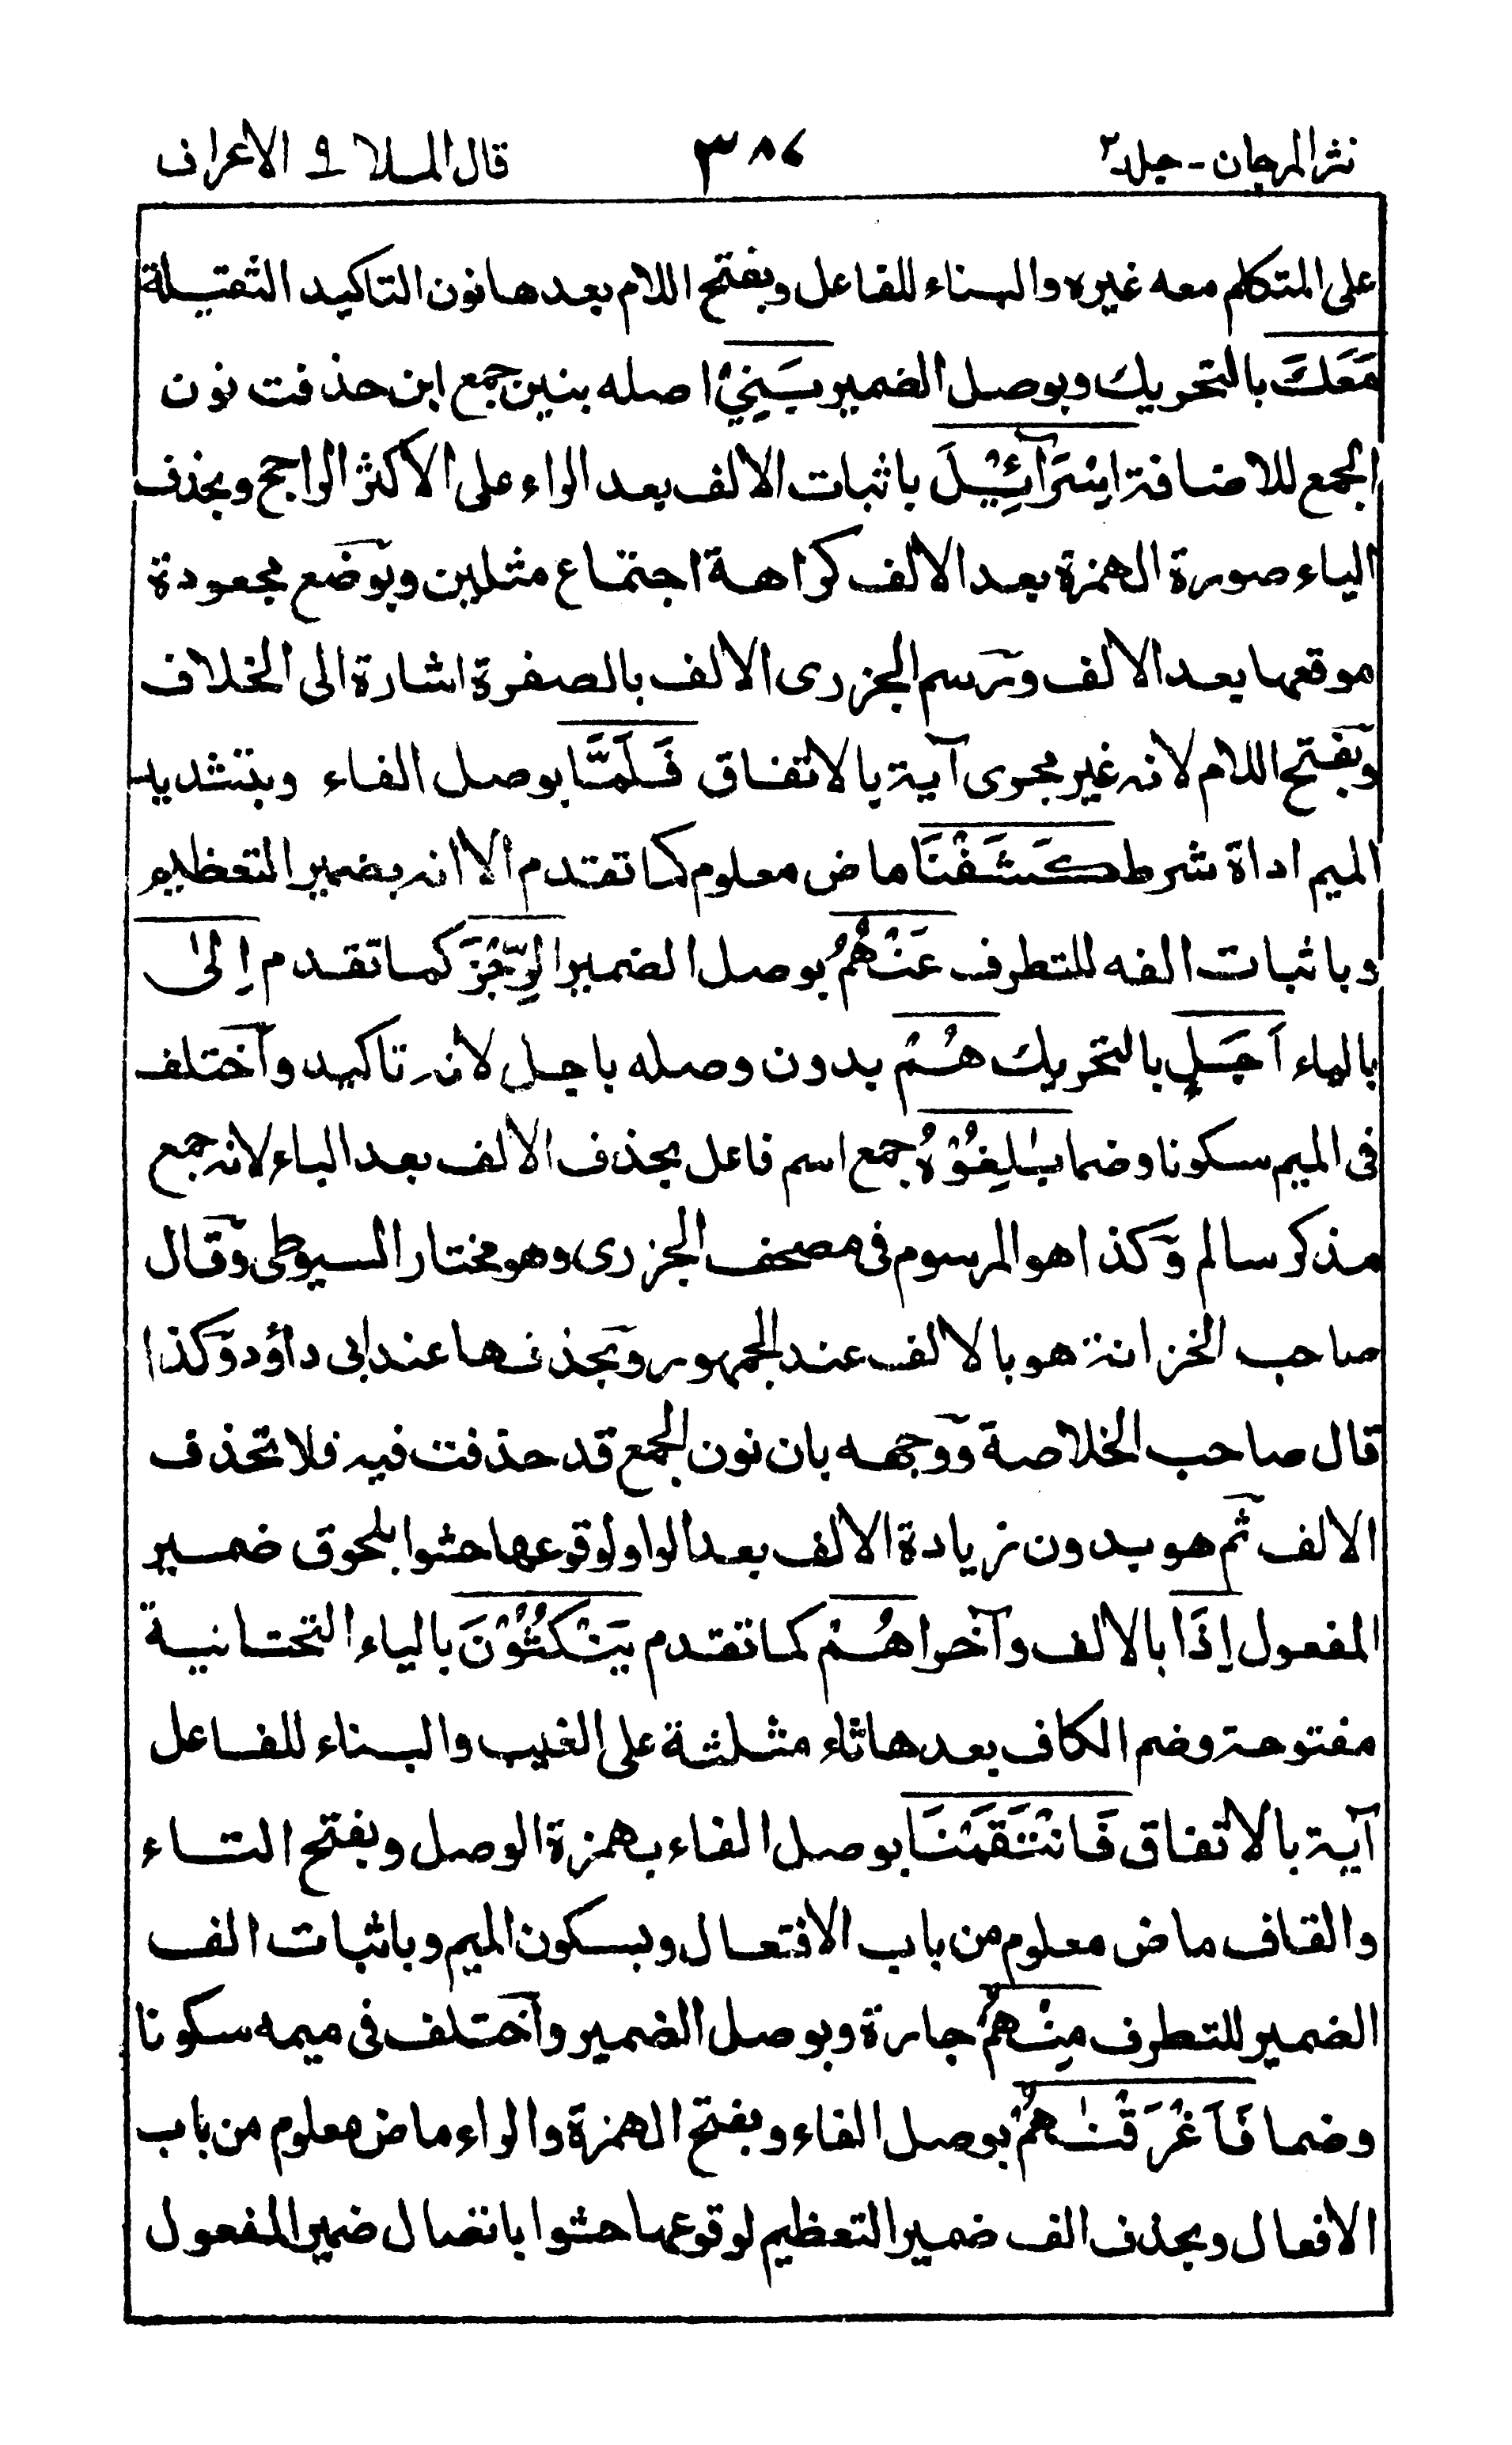 نثر المرجان - جلد ٣
٣٨٧
قال الملا ٩ الاعراف
على المتكلم معه غيره والبناء للفاعل وبفتح اللام بعدها نون التاكيد الثقيلة
مَعَكَ بالتحريك وبوصل الضمير بَنِيْ اصله بنين جمع ابن حذفت نون
الجمع للاضافة اِسْرَآئِيْلَ باثبات الالف بعد الراء على الاكثر الراجح وبحذف
الياء صورة الهمزة بعد الالف كراهة اجتماع مثلين وبوضع مجعودة
موقعها بعد الالف ورسم الجزرى الالف بالصفرة اشارة الى الخلاف
وبفتح اللام لانه غير مجرى آية بالاتفاق فَلَمَّا بوصل الفاء وبتشديد
الميم اداة شرط كَشَفْنَا ماض معلوم كما تقدم الا انه بضمير التعظيم
وباثبات الفه للتطرف عَنْهُمُ بوصل الضمير الرِّجْزَ كما تقدم اِلٰى
بالياء اَجَلٍ بالتحريك هُمْ بدون وصله باجل لانه تاكيد واختلف
فى الميم سكونا وضما بٰلِغُوْهُ جمع اسم فاعل بحذف الالف بعد الباء لانه جمع
مذكر سالم وكذا هو المرسوم فى مصحف الجزرى وهو مختار السيوطى وقال
صاحب الخزانة هو بالالف عند الجمهور وبحذفها عند ابى داؤد وكذا
قال صاحب الخلاصة ووجهه بان نون الجمع قد حذفت فيه فلا تحذف
الالف ثم هو بدون زيادة الالف بعد الواو لوقوعها حشوا بلحوق ضمير
المفعول اِذَا بالالف وآخرا هُمْ كما تقدم يَنْكُثُوْنَ بالياء التحتانية
مفتوحة وضم الكاف بعدها ثاء مثلثة على الغيب والبناء للفاعل
آية بالاتفاق فَانْتَقَمْنَا بوصل الفاء بهمزة الوصل وبفتح التاء
والقاف ماض معلوم من باب الافتعال وبسكون الميم وباثبات الف
الضمير للتطرف مِنْهُمْ جارة وبوصل الضمير واختلف فى ميمه سكونا
وضما فَاَغْرَقْنٰهُمْ بوصل الفاء وبفتح الهمزة والراء ماض معلوم من باب
الافعال وبحذف الف ضمير التعظيم لوقوعها حشوا باتصال ضمير المفعول